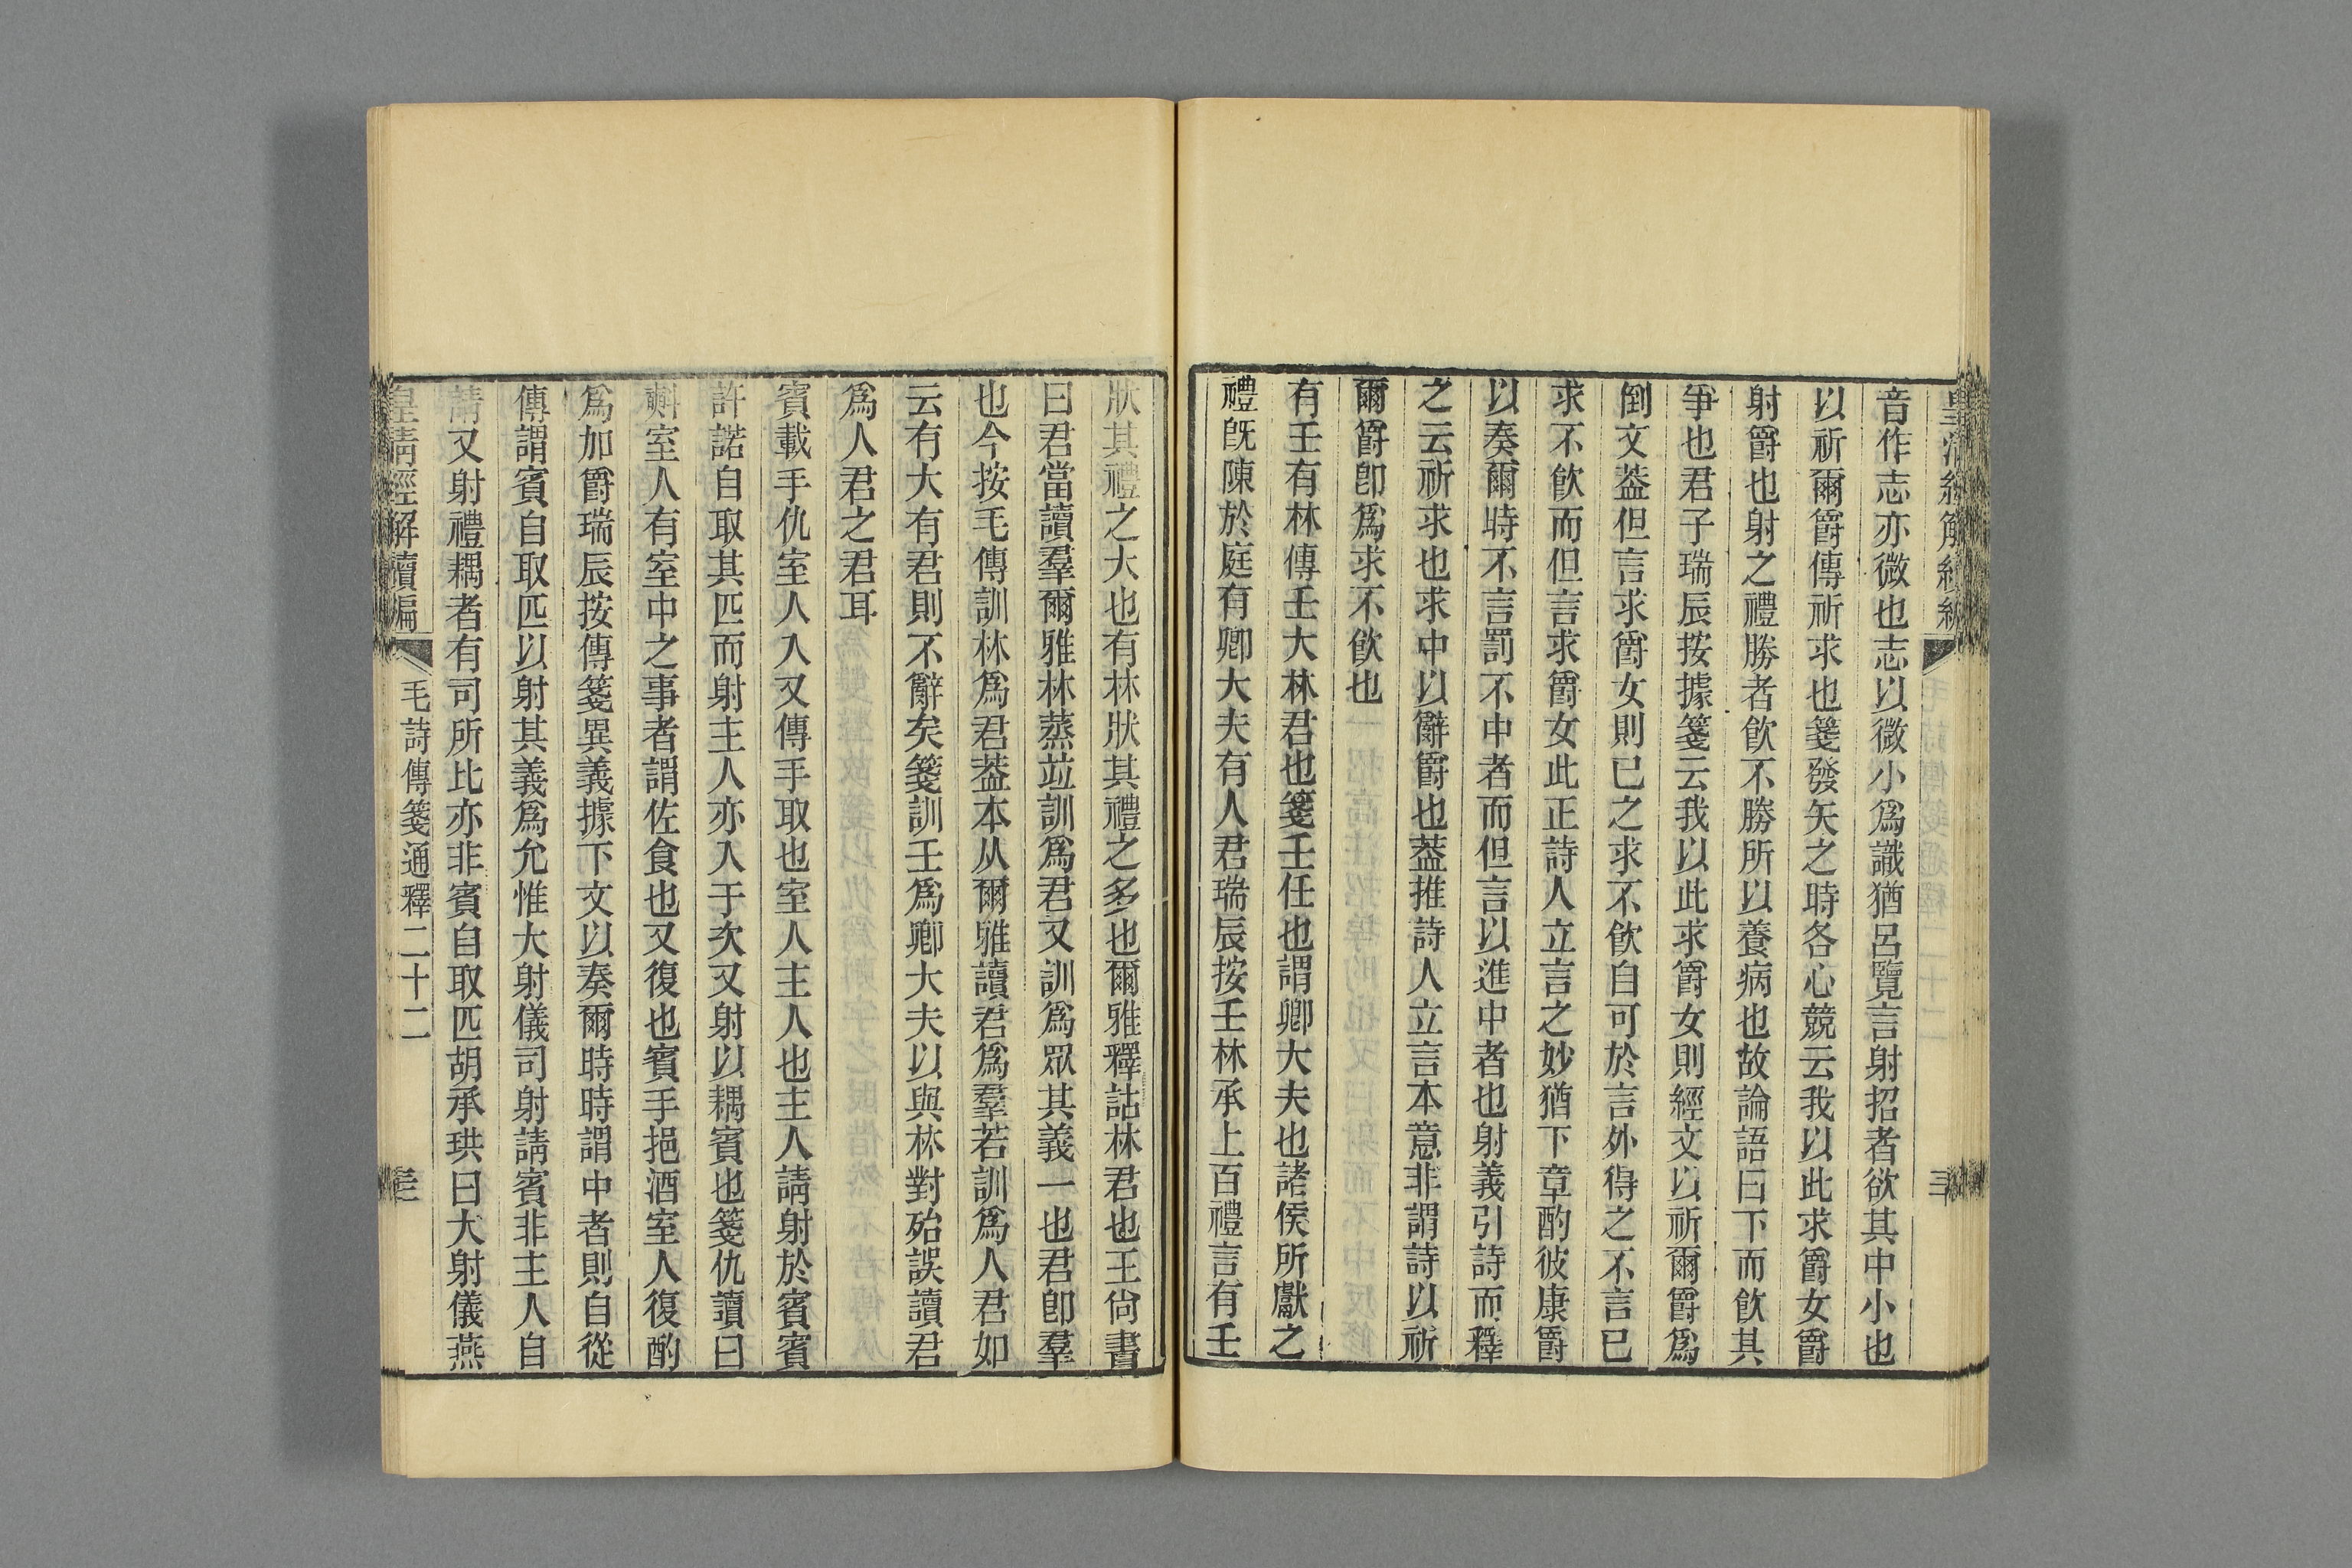 音作志亦微也志以微小爲識猶呂覽言射招者欲其中小也
以祈爾爵傳祈求也箋發矢之時各心競云我以此求爵女爵
射爵也射之禮勝者飮不勝所以養病也故論語曰下而飮其
爭也君子瑞辰按據箋云我以此求爵女則經文以祈爾爵爲
倒文葢但言求爵女則已之求不飮自可於言外得之不言已
求不飮而但言求爵女此正詩人立言之妙猶下章酌彼康爵
以奏爾時不言罰不中者而但言以進中者也射義引詩而釋
之云祈求也求中以辭爵也葢推詩人立言本意非謂詩以祈
爾爵卽爲求不飮也
有壬有林傳壬大林君也箋壬任也謂卿大夫也諸侯所獻之
禮旣陳於庭有卿大夫有人君瑞辰按壬林承上百禮言有壬
狀其禮之大也有林狀其禮之多也爾雅釋詁林君也王尙書
曰君當讀羣爾雅林蒸竝訓爲君又訓爲眾其義一也君卽羣
也今按毛傳訓林爲君葢本从爾雅讀君爲羣若訓爲人君如
云有大有君則不辭矣箋訓壬爲卿大夫以與林對殆誤讀君
爲人君之君耳
賓載手仇室人入又傳手取也室人主人也主人請射於賓賓
許諾自取其匹而射主人亦入于次又射以耦賓也箋仇讀曰
㪺室人有室中之事者謂佐食也又復也賓手挹酒室人復酌
爲加爵瑞辰按傳箋異義據下文以奏爾時時謂中者則自從
傳謂賓自取匹以射其義爲允惟大射儀司射請賓非主人自
請又射禮耦者有司所比亦非賓自取匹胡承珙曰大射儀燕
皇清經解續編
毛詩傳箋通釋二十二